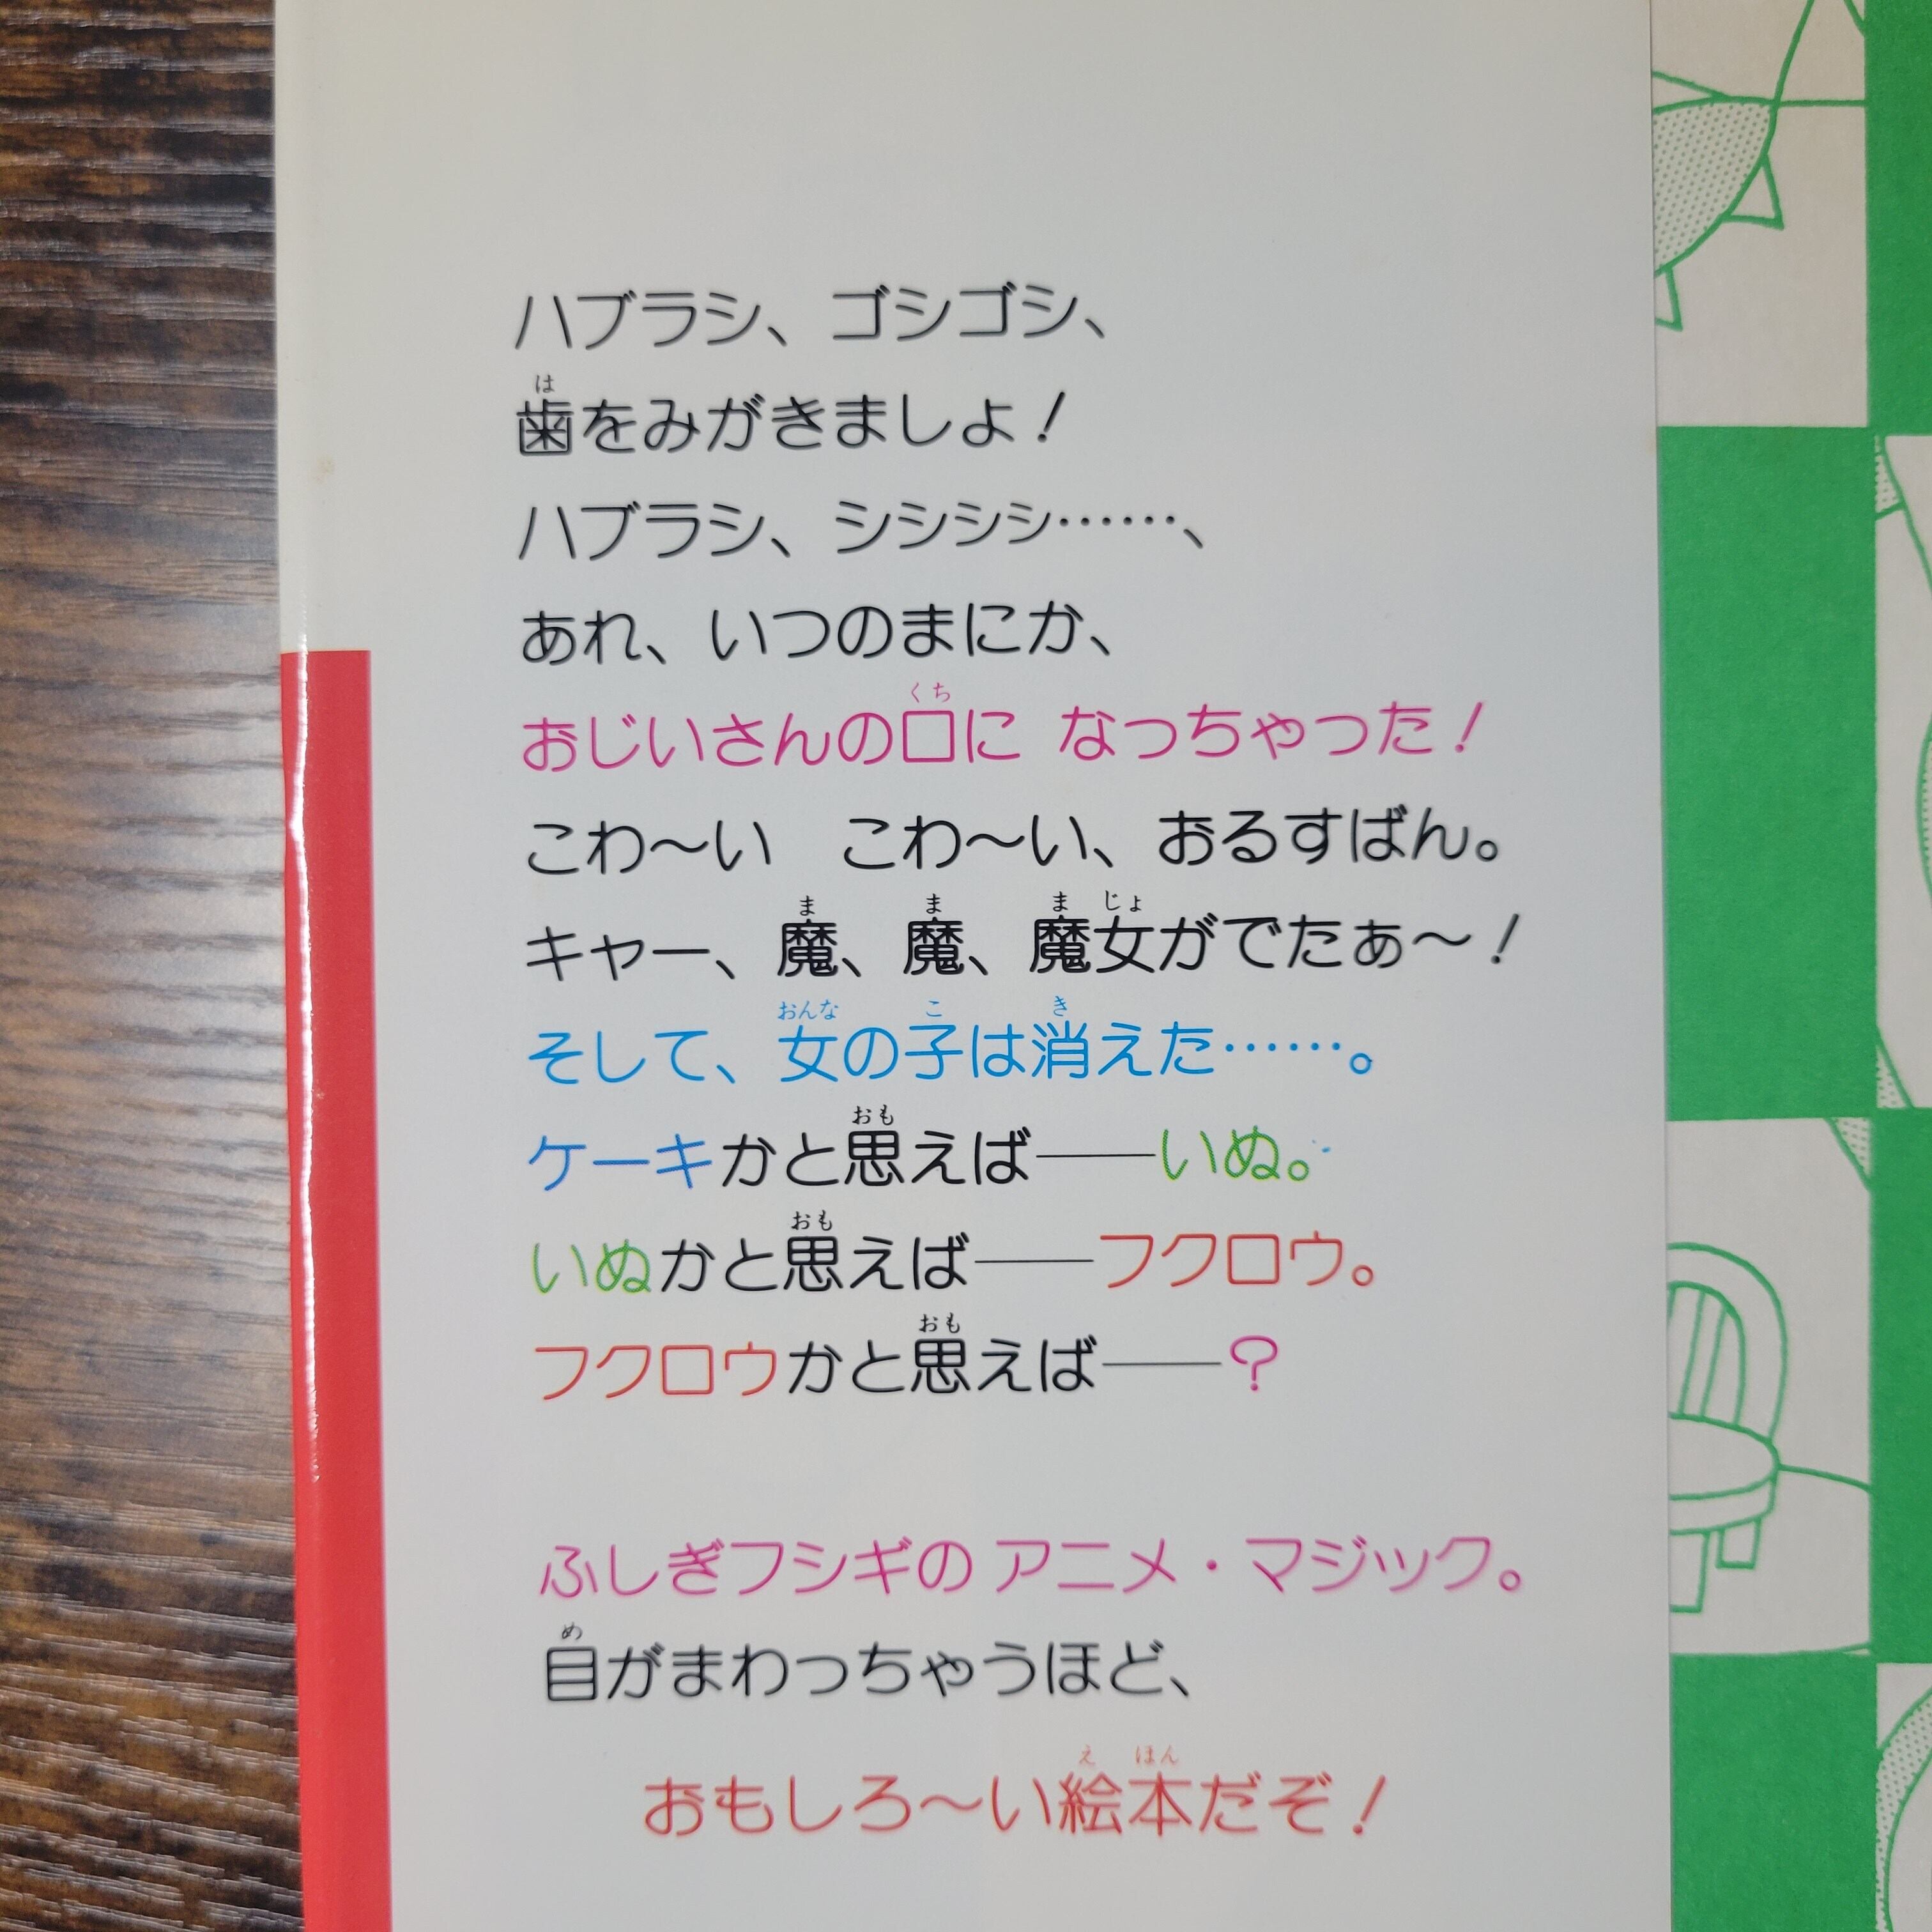 ハブラシ、ゴシゴシ、
歯をみがきましよ！
ハブラシ、シシシシ……、
あれ、いつのまにか、
おじいさんの口に なっちゃった！
こわ〜い　こわ〜い、おるすばん。
キャー、魔、魔、魔女がでたぁ〜！
そして、女の子は消えた……。
ケーキかと思えば――いぬ。
いぬかと思えば――フクロウ。
フクロウかと思えば――？
ふしぎフシギの アニメ・マジック。
目がまわっちゃうほど、
おもしろ〜い絵本だぞ！